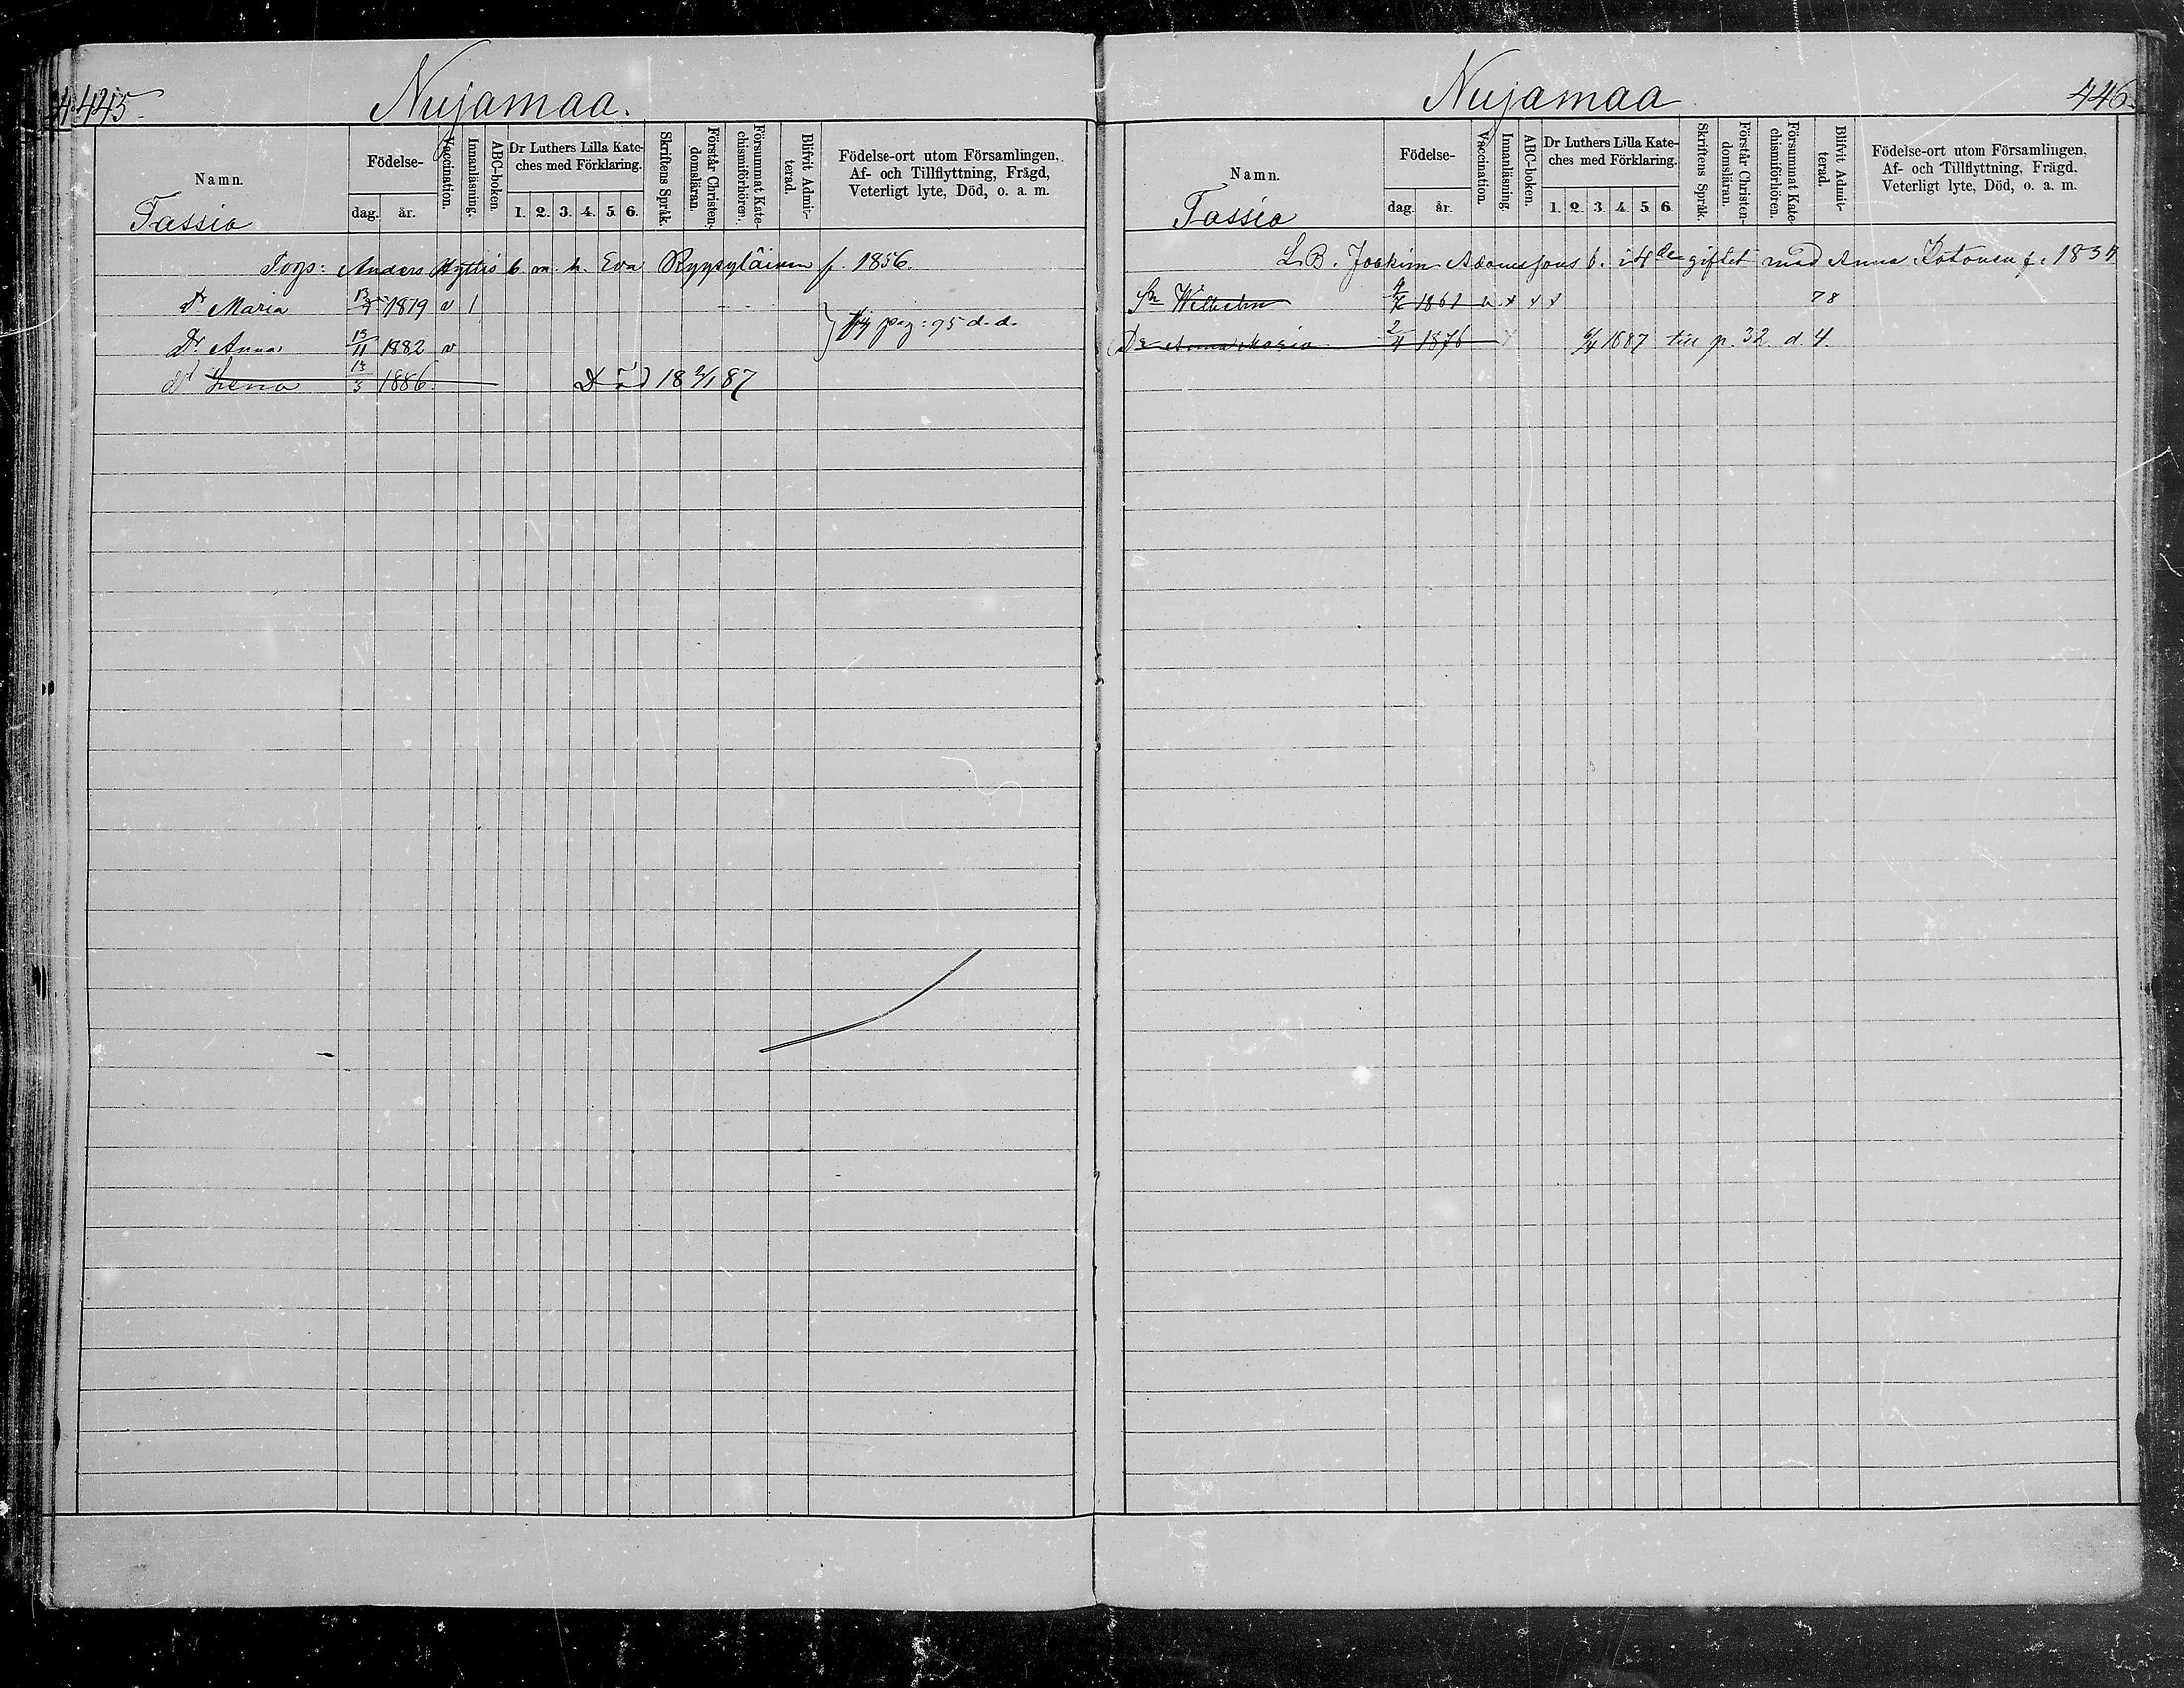 445.
Nujamaa.
Namn.
Födelse-
dag. år.
Vaccination.
Innanläsning.
ABC-boken.
Dr Luthers Lilla Kate-
ches med Förklaring.
1. 2. 3. 4. 5. 6.
Skriftens Språk.
Förstår Christen-
domsläran.
Försummat Kate-
chismiförhören.
Blifvit Admit-
terad.
Födelse-ort utom Församlingen,
Af- och Tillflyttning, Frägd,
Veterligt lyte, Död, o. a. m.
Tassia
Torp: Anders Hyttis b. m. h. Eva Ryypyläinen f. 1856.
Dr Maria 1879 v 1
Dr Anna 15/11 1882 v
pag: 95 d. d.
Dr Lena 13/3 1886. Död 18 2/1 87
Nujamaa
446.
Namn.
Födelse-
dag. år.
Vaccination.
Innanläsning.
ABC-boken.
Dr Luthers Lilla Kate-
ches med Förklaring.
1. 2. 3. 4. 5. 6.
Skriftens Språk.
Förstår Christen-
domsläran.
Försummat Kate-
chismiförhören.
Blifvit Admit-
terad.
Födelse-ort utom Församlingen,
Af- och Tillflyttning, Frägd,
Veterligt lyte, Död, o. a. m.
Tassia
L. B. Joakim Adamssons b. i 4de giftet med Anna Kotonen f. 1834
Sn Wilhelm 1861 v x x x 78
Dr Anna Maria 2/4 1876 6/4 1887 till p. 32. d. 4.